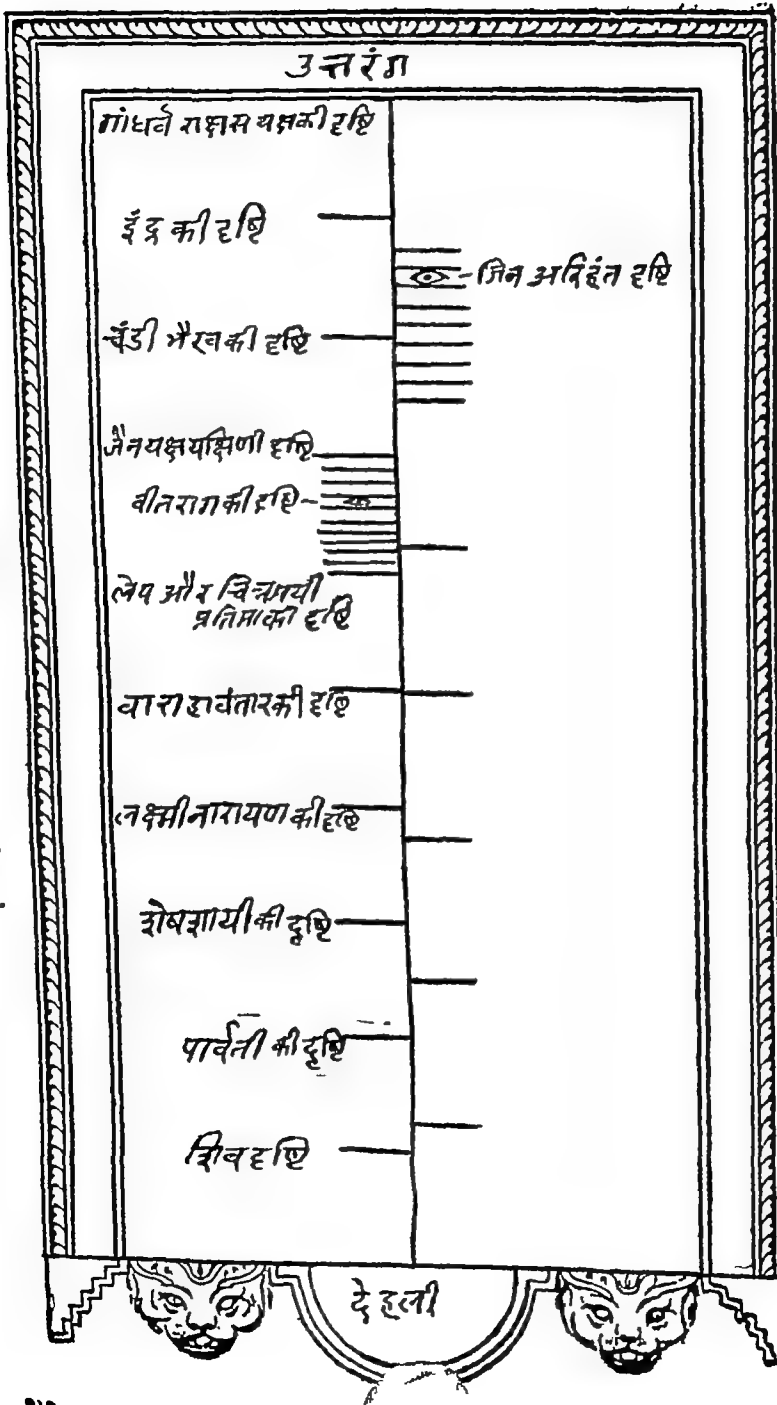 उत्तरंग
गांधर्व राक्षस यक्षकी दृष्टि
इंद्र की दृष्टि
जिन अरिहंत दृष्टि
चंडी भैरव की दृष्टि
जैन यक्ष यक्षिणी दृष्टि
वीतराग की दृष्टि
लेप और चित्रमयी
प्रतिमाकी दृष्टि
वाराहावतारकी दृष्टि
लक्ष्मीनारायण की दृष्टि
शेषशायी की दृष्टि
पार्वती की दृष्टि
शिव दृष्टि
देहली